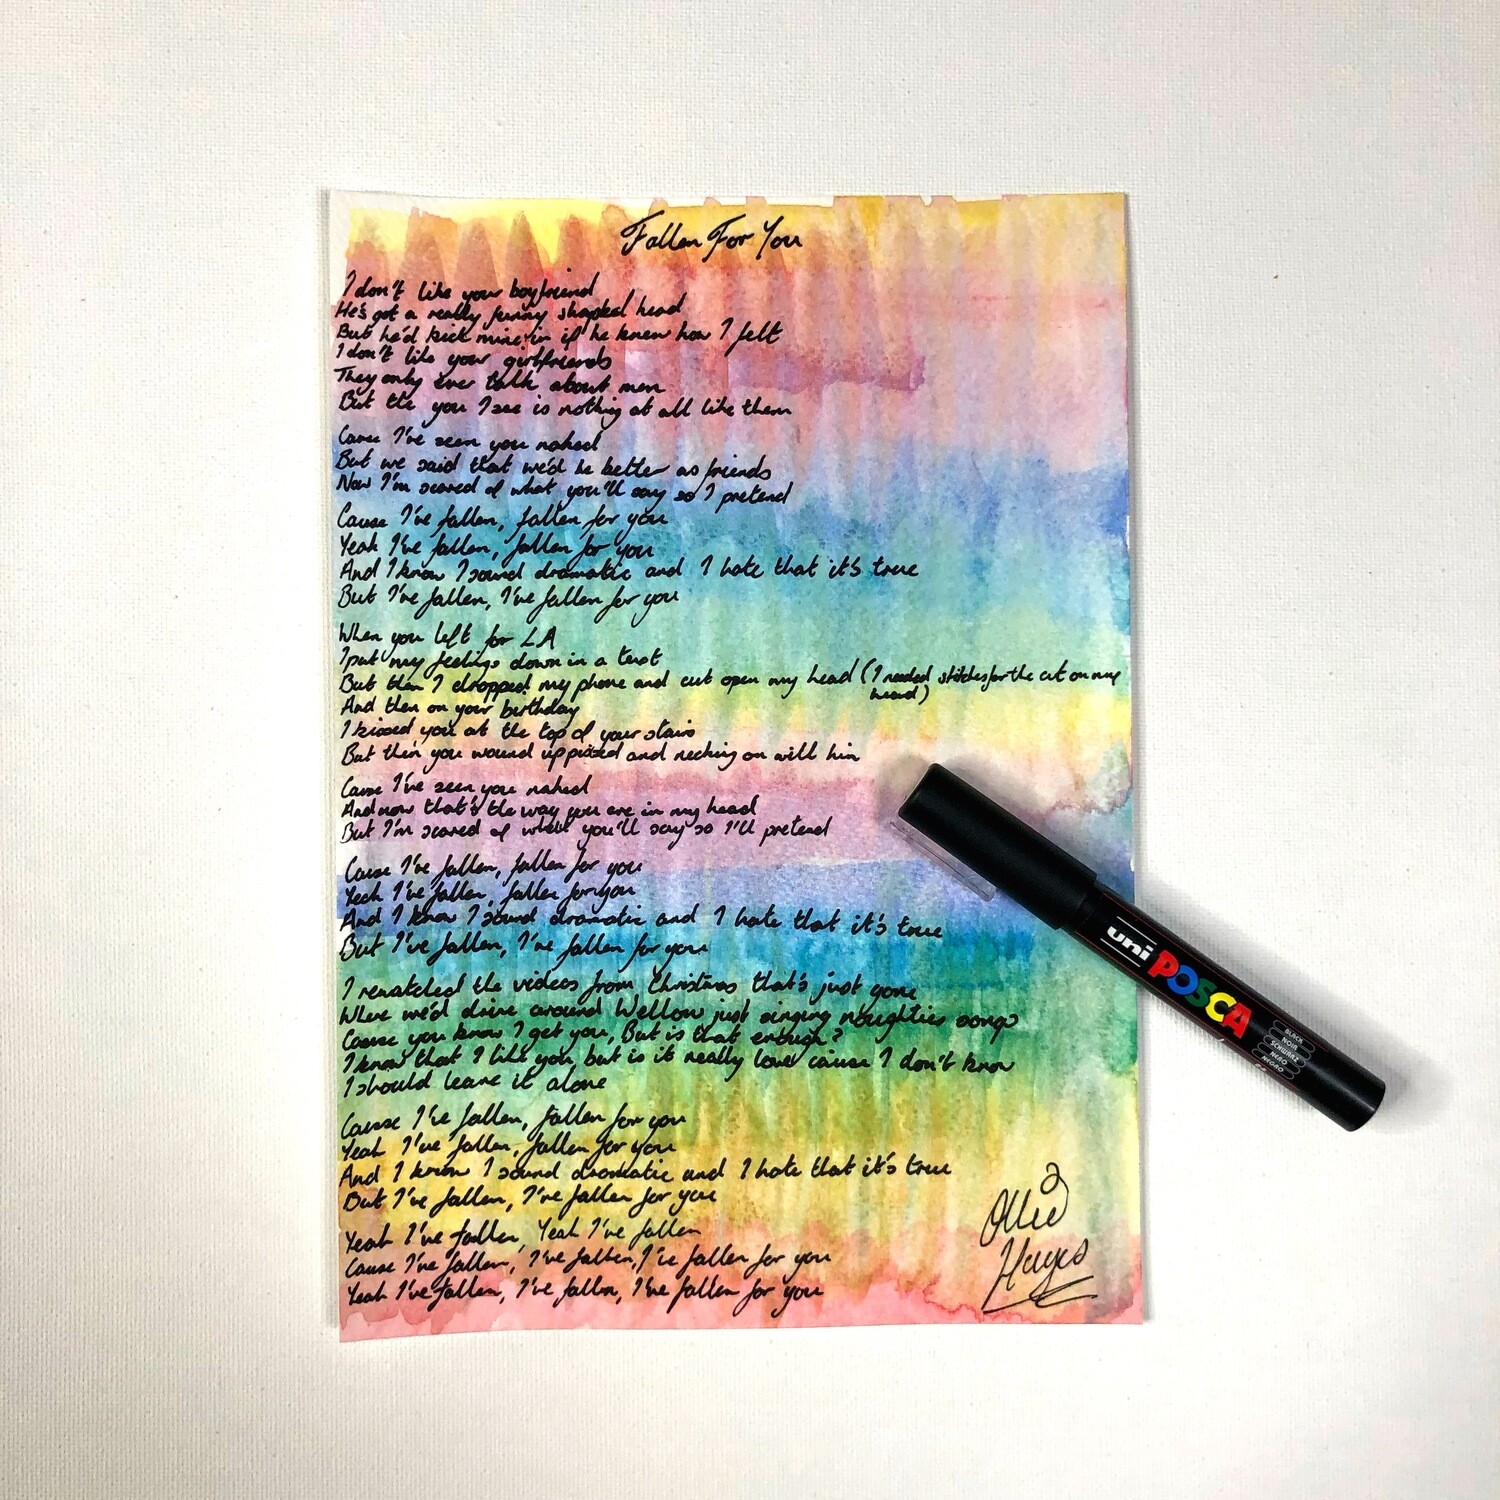 Fallen For You
I don't like your boyfriend
He's got a really funny shaped head
But he'd kick mine in if he knew how I felt
I don't like your girlfriends
They only ever talk about men
But the you I see is nothing at all like them
Cause I've seen you naked
But we said that we'd be better as friends
Now I'm scared of what you'll say so I pretend
Cause I've fallen, fallen for you
Yeah I've fallen, fallen for you
And I know I sound dramatic and I hate that it's true
But I've fallen, I've fallen for you
When you left for LA
I put my feelings down in a text
But then I dropped my phone and cut open my head (I needed stitches for the cut on my
head)
And then on your birthday
I kissed you at the top of your stairs
But then you wound up pissed and necking on with him
Cause I've seen you naked
And now that's the way you are in my head
But I'm scared of what you'll say so I'll pretend
Cause I've fallen, fallen for you
Yeah I've fallen, fallen for you
And I know I sound dramatic and I hate that it's true
But I've fallen, I've fallen for you
I rewatched the videos from Christmas that's just gone
Where we'd drive around Wellow just singing noughties songs
Cause you know I get you, But is that enough?
I know that I like you, but is it really love cause I don't know
I should leave it alone
Cause I've fallen, fallen for you
Yeah I've fallen, fallen for you
And I know I sound dramatic and I hate that it's true
But I've fallen, I've fallen for you
Yeah I've fallen, Yeah I've fallen
Cause I've fallen, I've fallen, I've fallen for you
Yeah I've fallen, I've fallen, I've fallen for you
Ollie
Hayes
uni POSCA
BLACK
NOIR
SCHWARZ
NERO
NEGRO